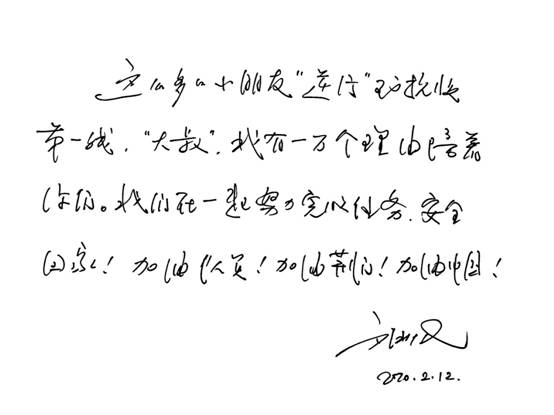 这么多的小朋友“逆行”到抗疫
第一线，“大叔”，我有一万个理由
你们。我们在一起努力完成任务、安全
回家！加油队员！加油！加油中国！
2020.2.12.